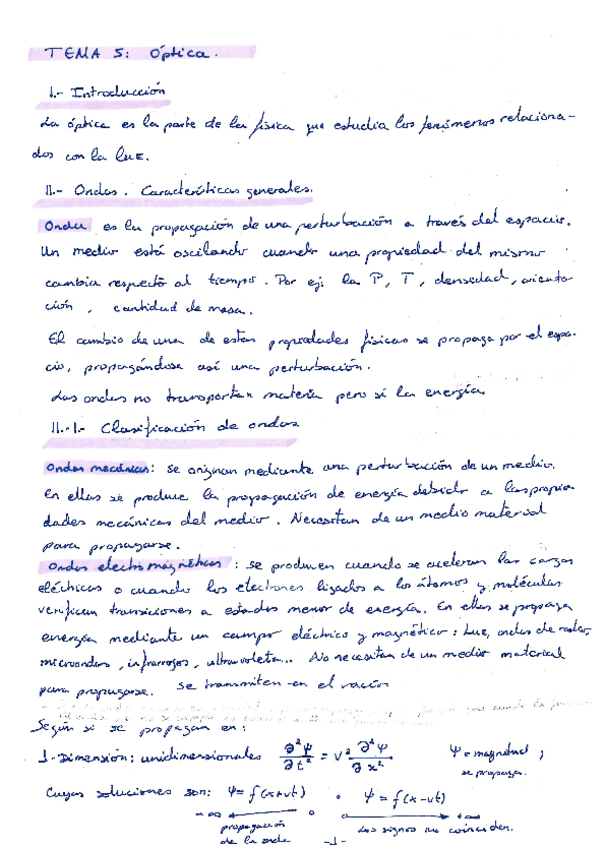 TEMA 5: Óptica.
I.- Introducción
La óptica es la parte de la física que estudia los fenómenos relaciona-
dos con la luz.
II.- Ondas. Características generales.
Onda es la propagación de una perturbación a través del espacio.
Un medio está oscilando cuando una propiedad del mismo
cambia respecto al tiempo. Por ej: la P, T, densidad, orienta-
ción, cantidad de masa.
El cambio de una de estas propiedades físicas se propaga por el espa-
cio, propagándose así una perturbación.
Las ondas no transportan materia pero sí la energía
II.-1.- Clasificación de ondas
Ondas mecánicas: se originan mediante una perturbación de un medio.
En ellas se produce la propagación de energía debido a las propie-
dades mecánicas del medio. Necesitan de un medio material
para propagarse.
Ondas electromagnéticas: se producen cuando se aceleran las cargas
eléctricas o cuando los electrones ligados a los átomos y moléculas
verifican transiciones a estados menor de energía. En ellas se propaga
energía mediante un campo eléctrico y magnético: Luz, ondas de radar,
microondas, infrarrojos, ultravioleta... No necesitan de un medio material
para propagarse. Se transmiten en el vacío
Según si se propagan en:
1-Dimensión: unidimensionales ∂²Ψ/∂t² = v² ∂²Ψ/∂x² Ψ = magnitud ;
se propaga.
Cuyas soluciones son: Ψ = f(x+vt) o Ψ = f(x-vt)
-∞ o o +∞
propagación Los signos no coinciden.
de la onda -1-